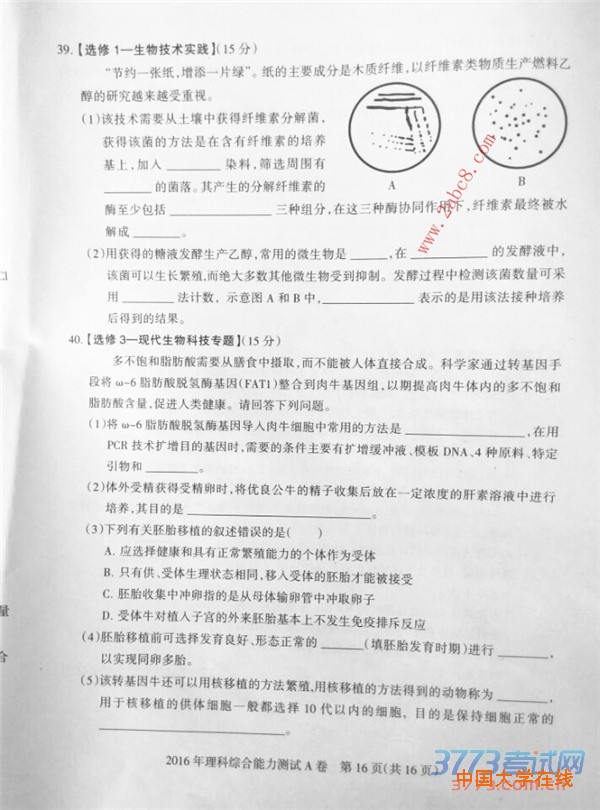 39.【选修 1—生物技术实践】(15 分)
“节约一张纸,增添一片绿”。纸的主要成分是木质纤维,以纤维素类物质生产燃料乙
醇的研究越来越受重视。
(1)该技术需要从土壤中获得纤维素分解菌,
获得该菌的方法是在含有纤维素的培养
基上,加入 ________ 染料,筛选周围有
________ 的菌落。其产生的分解纤维素的
酶至少包括 ________________ 三种组分,在这三种酶协同作用下,纤维素最终被水
解成 ________ 。
A
B
(2)用获得的糖液发酵生产乙醇,常用的微生物是 ______ ,在 ____________ 的发酵液中,
该菌可以生长繁殖,而绝大多数其他微生物受到抑制。发酵过程中检测该菌数量可采
用 ________ 法计数, 示意图 A 和 B 中,______________ 表示的是用该法接种培养
后得到的结果。
40.【选修 3—现代生物科技专题】(15 分)
多不饱和脂肪酸需要从膳食中摄取,而不能被人体直接合成。科学家通过转基因手
段将 ω-6 脂肪酸脱氢酶基因(FAT1)整合到肉牛基因组,以期提高肉牛体内的多不饱和
脂肪酸含量,促进人类健康。请回答下列问题。
(1)将 ω-6 脂肪酸脱氢酶基因导入肉牛细胞中常用的方法是 __________________ ,在用
PCR 技术扩增目的基因时,需要的条件主要有扩增缓冲液、模板 DNA、4 种原料、特定
引物和 ________ 。
(2)体外受精获得受精卵时,将优良公牛的精子收集后放在一定浓度的肝素溶液中进行
培养,其目的是 ____________________________ 。
(3)下列有关胚胎移植的叙述错误的是(    )
A. 应选择健康和具有正常繁殖能力的个体作为受体
B. 只有供、受体生理状态相同,移入受体的胚胎才能被接受
C. 胚胎收集中冲卵指的是从母体输卵管中冲取卵子
D. 受体牛对植入子宫的外来胚胎基本上不发生免疫排斥反应
(4)胚胎移植前可选择发育良好、形态正常的 ______ (填胚胎发育时期)进行 ________ ,
以实现同卵多胎。
(5)该转基因牛还可以用核移植的方法繁殖,用核移植的方法得到的动物称为 ________ ,
用于核移植的供体细胞一般都选择 10 代以内的细胞, 目的是保持细胞正常的
____________________________ 。
2016 年理科综合能力测试 A 卷 第 16 页(共 16 页)
量
合
3773考试网
中国大学在线